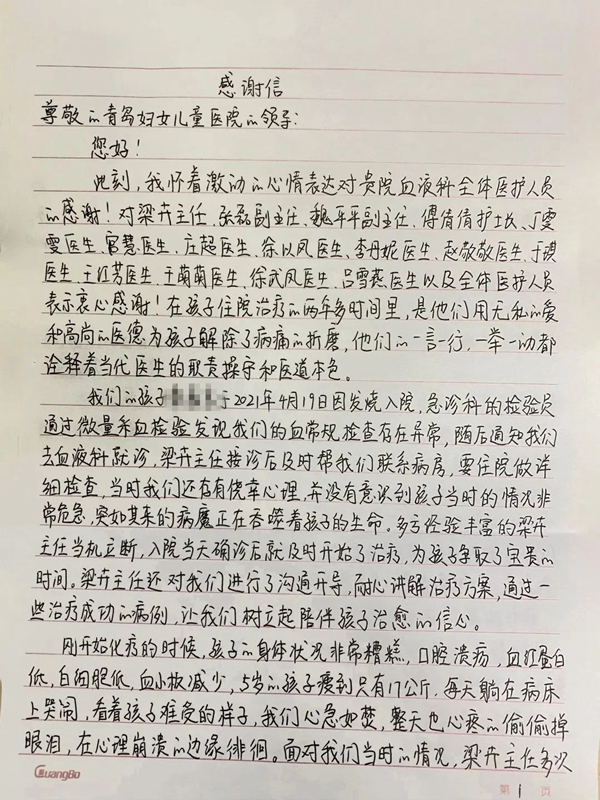 感谢信
尊敬的青岛妇女儿童医院的领导:
您好!
此刻,我怀着激动的心情表达对贵院血液科全体医护人员
的感谢!对梁卉主任、张磊副主任、魏平平副主任、傅倩倩护士长、丁雯
雯医生、官慧医生、庄超医生、徐以凤医生、李丹妮医生、赵敬敬医生、于薇
医生、王红芳医生、王菌菌医生、徐武凤医生、吕雪燕医生以及全体医护人员
表示衷心感谢!在孩子住院治疗的两年多时间里,是他们用无私的爱
和高尚的医德为孩子解除了病痛的折磨,他们的一言一行,一举一动都
诠释着当代医生的职责操守和医道本色。
我们的孩子于2021年4月19日因发烧入院,急诊科的检验员
通过微量采血检验发现我们的血常规检查存在异常,随后通知我们
去血液科就诊,梁卉主任接诊后及时帮我们联系病房,要住院做详
细检查,当时我们还存有侥幸心理,并没有意识到孩子当时的情况非
常危急,突如其来的病魔正在吞噬着孩子的生命。多亏经验丰富的梁卉
主任当机立断,入院当天确诊后就及时开始了治疗,为孩子争取了宝贵的
时间。梁卉主任还对我们进行了沟通开导,耐心讲解治疗方案,通过一
些治疗成功的病例,让我们树立起陪伴孩子治愈的信心。
刚开始化疗的时候,孩子的身体状况非常糟糕,口腔溃疡,血红蛋白
低,白细胞低,血小板减少,5岁的孩子瘦到只有17公斤,每天躺在病床
上哭闹,看着孩子难受的样子,我们心急如焚,整天也心疼的偷偷掉
眼泪,在心理崩溃的边缘徘徊。面对我们当时的情况,梁卉主任多次
GuangBo
第1页